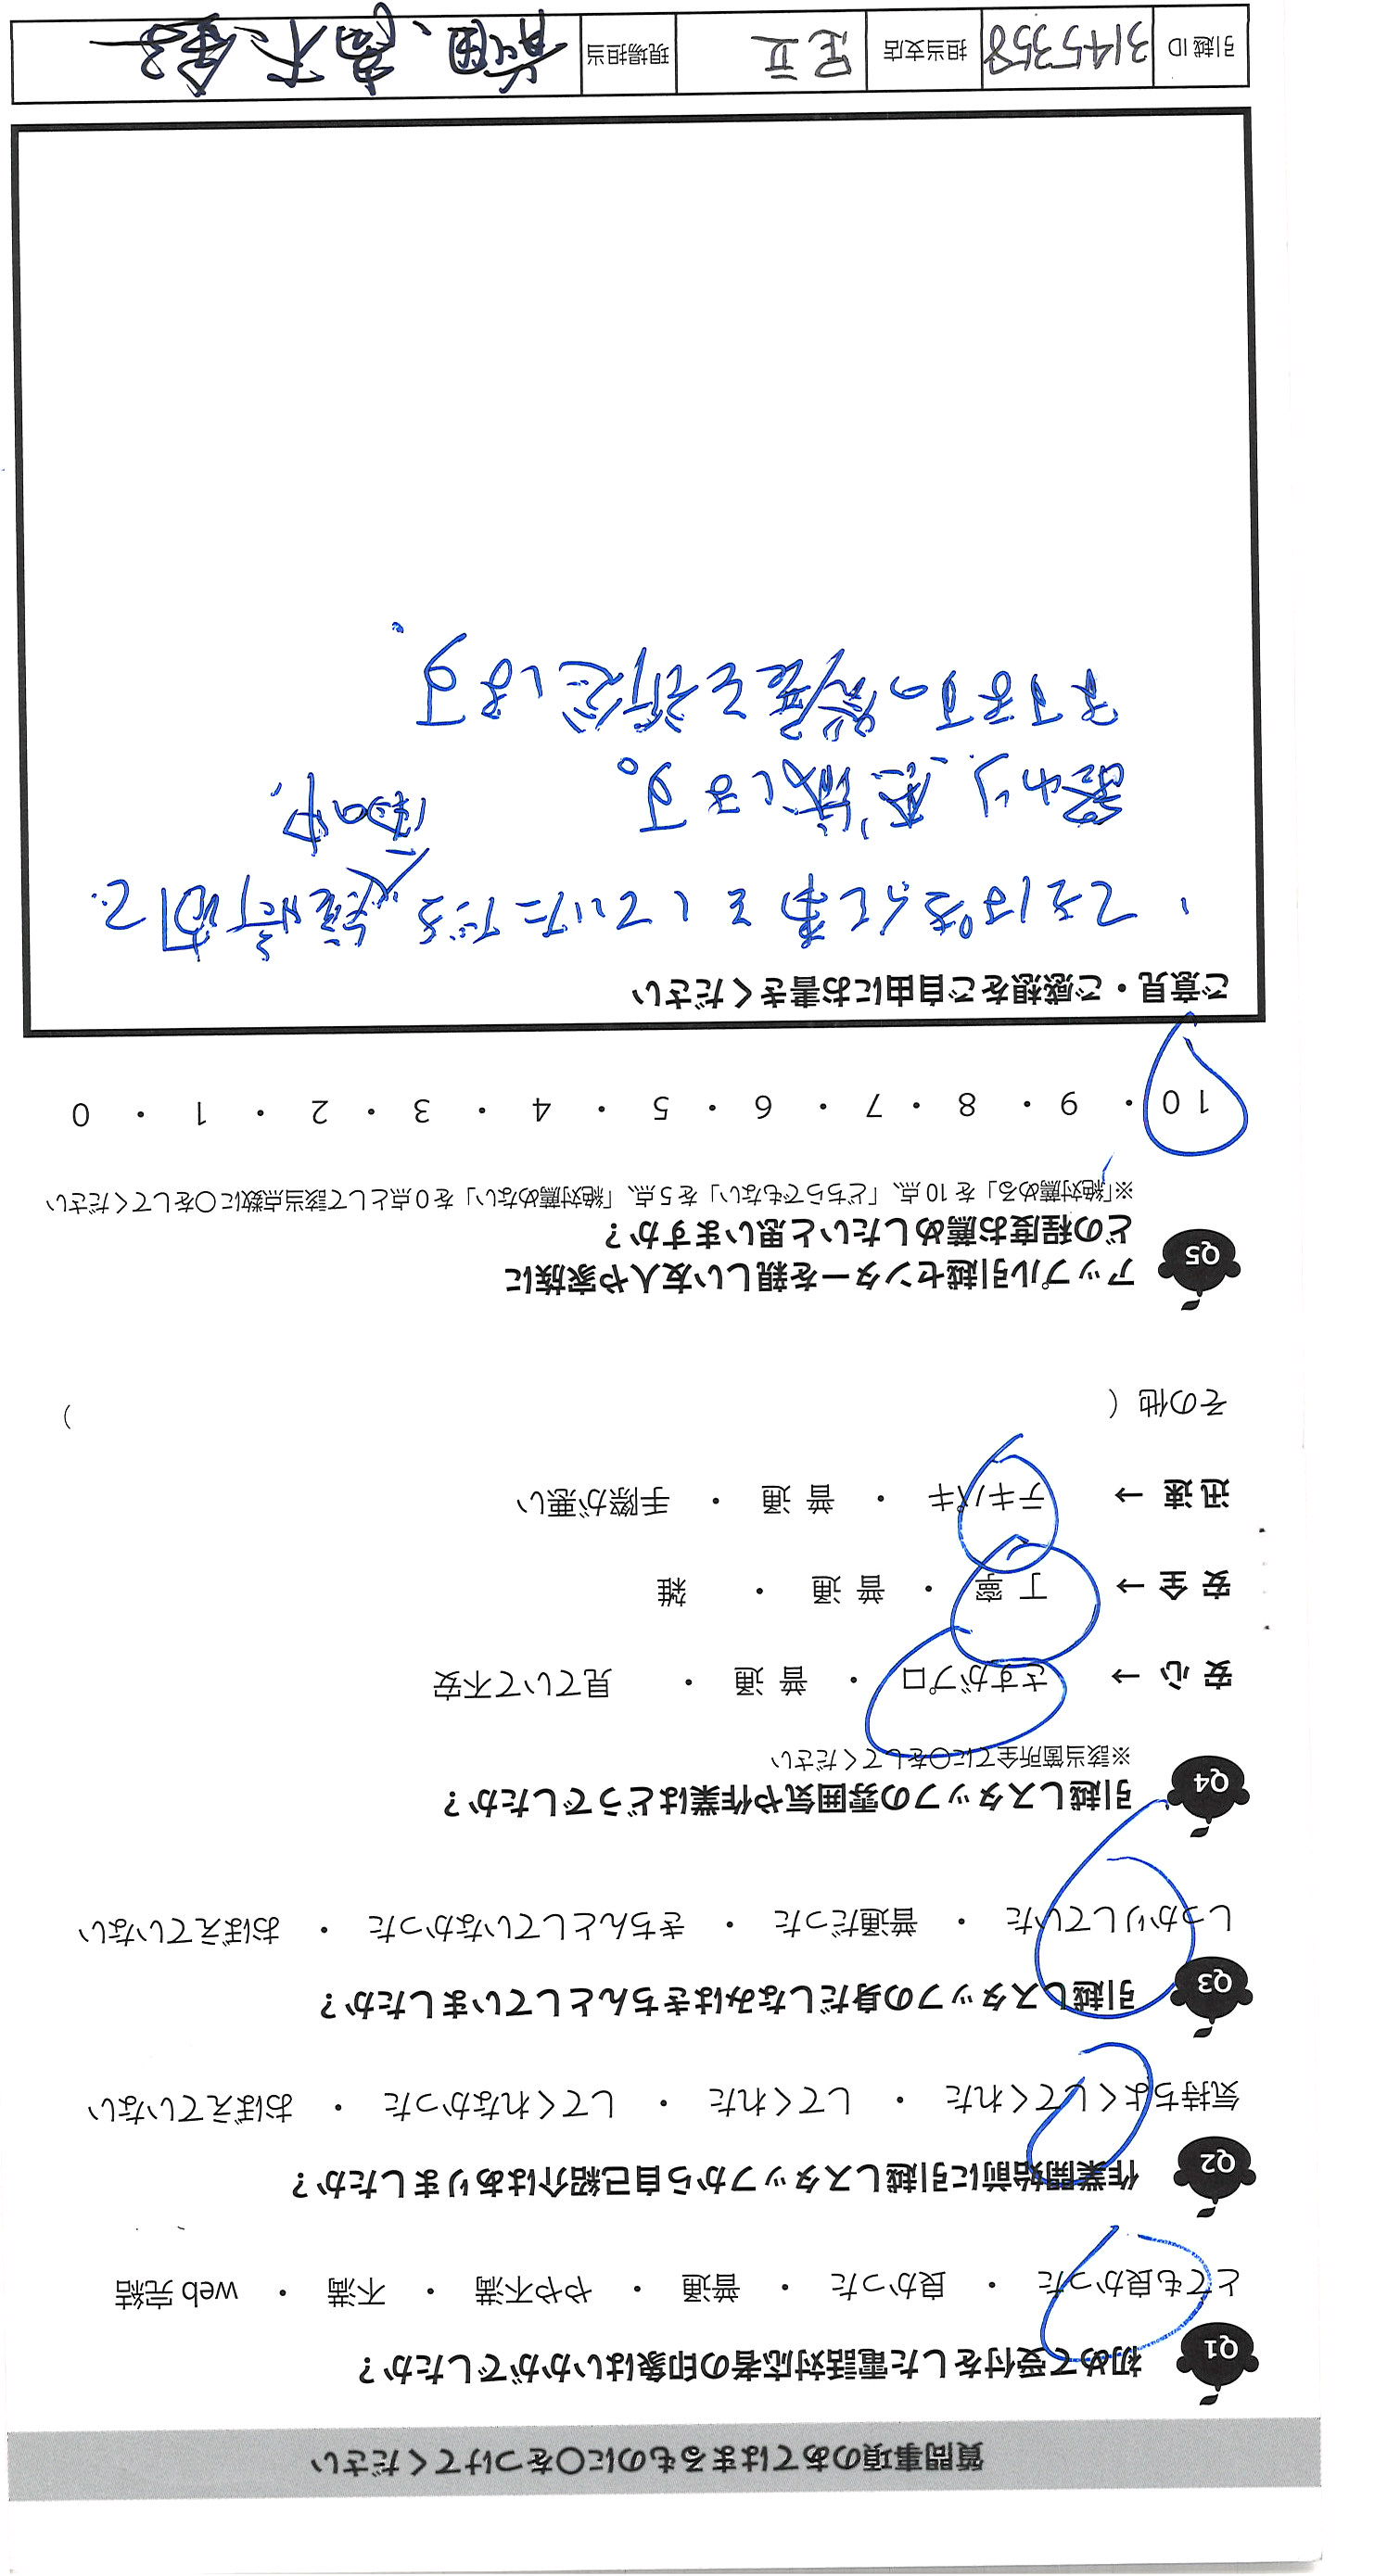 質問事項のあてはまるものに○をつけてください
Q1 初めて受付をした電話対応者の印象はいかがでしたか？
とても良かった ・ 良かった ・ 普通 ・ やや不満 ・ 不満 ・ web 完結
Q2 作業開始前に引越しスタッフから自己紹介はありましたか？
気持ちよくしてくれた ・ してくれた ・ してくれなかった ・ おぼえていない
Q3 引越しスタッフの身だしなみはきちんとしていましたか？
しっかりしていた ・ 普通だった ・ きちんとしていなかった ・ おぼえていない
Q4 引越しスタッフの雰囲気や作業はどうでしたか？
※該当箇所全てに○をしてください
安 心 → さすがプロ ・ 普 通 ・ 見ていて不安
安 全 → 丁 寧 ・ 普 通 ・ 雑
迅 速 → テキパキ ・ 普 通 ・ 手際が悪い
その他（ ）
Q5 アップル引越センターを親しい友人や家族に
どの程度お薦めしたいと思いますか？
※「絶対薦める」を 10 点、「どちらでもない」を 5 点、「絶対薦めない」を 0 点として該当点数に○をしてください
10 ・ 9 ・ 8 ・ 7 ・ 6 ・ 5 ・ 4 ・ 3 ・ 2 ・ 1 ・ 0
ご意見・ご感想をご自由にお書きください
てきぱきと事をしていただき 短時間で
雨の中、
終わり、感謝します。
ますますの発展を祈念します
引越 ID 3145358 担当支店 足立 現場担当